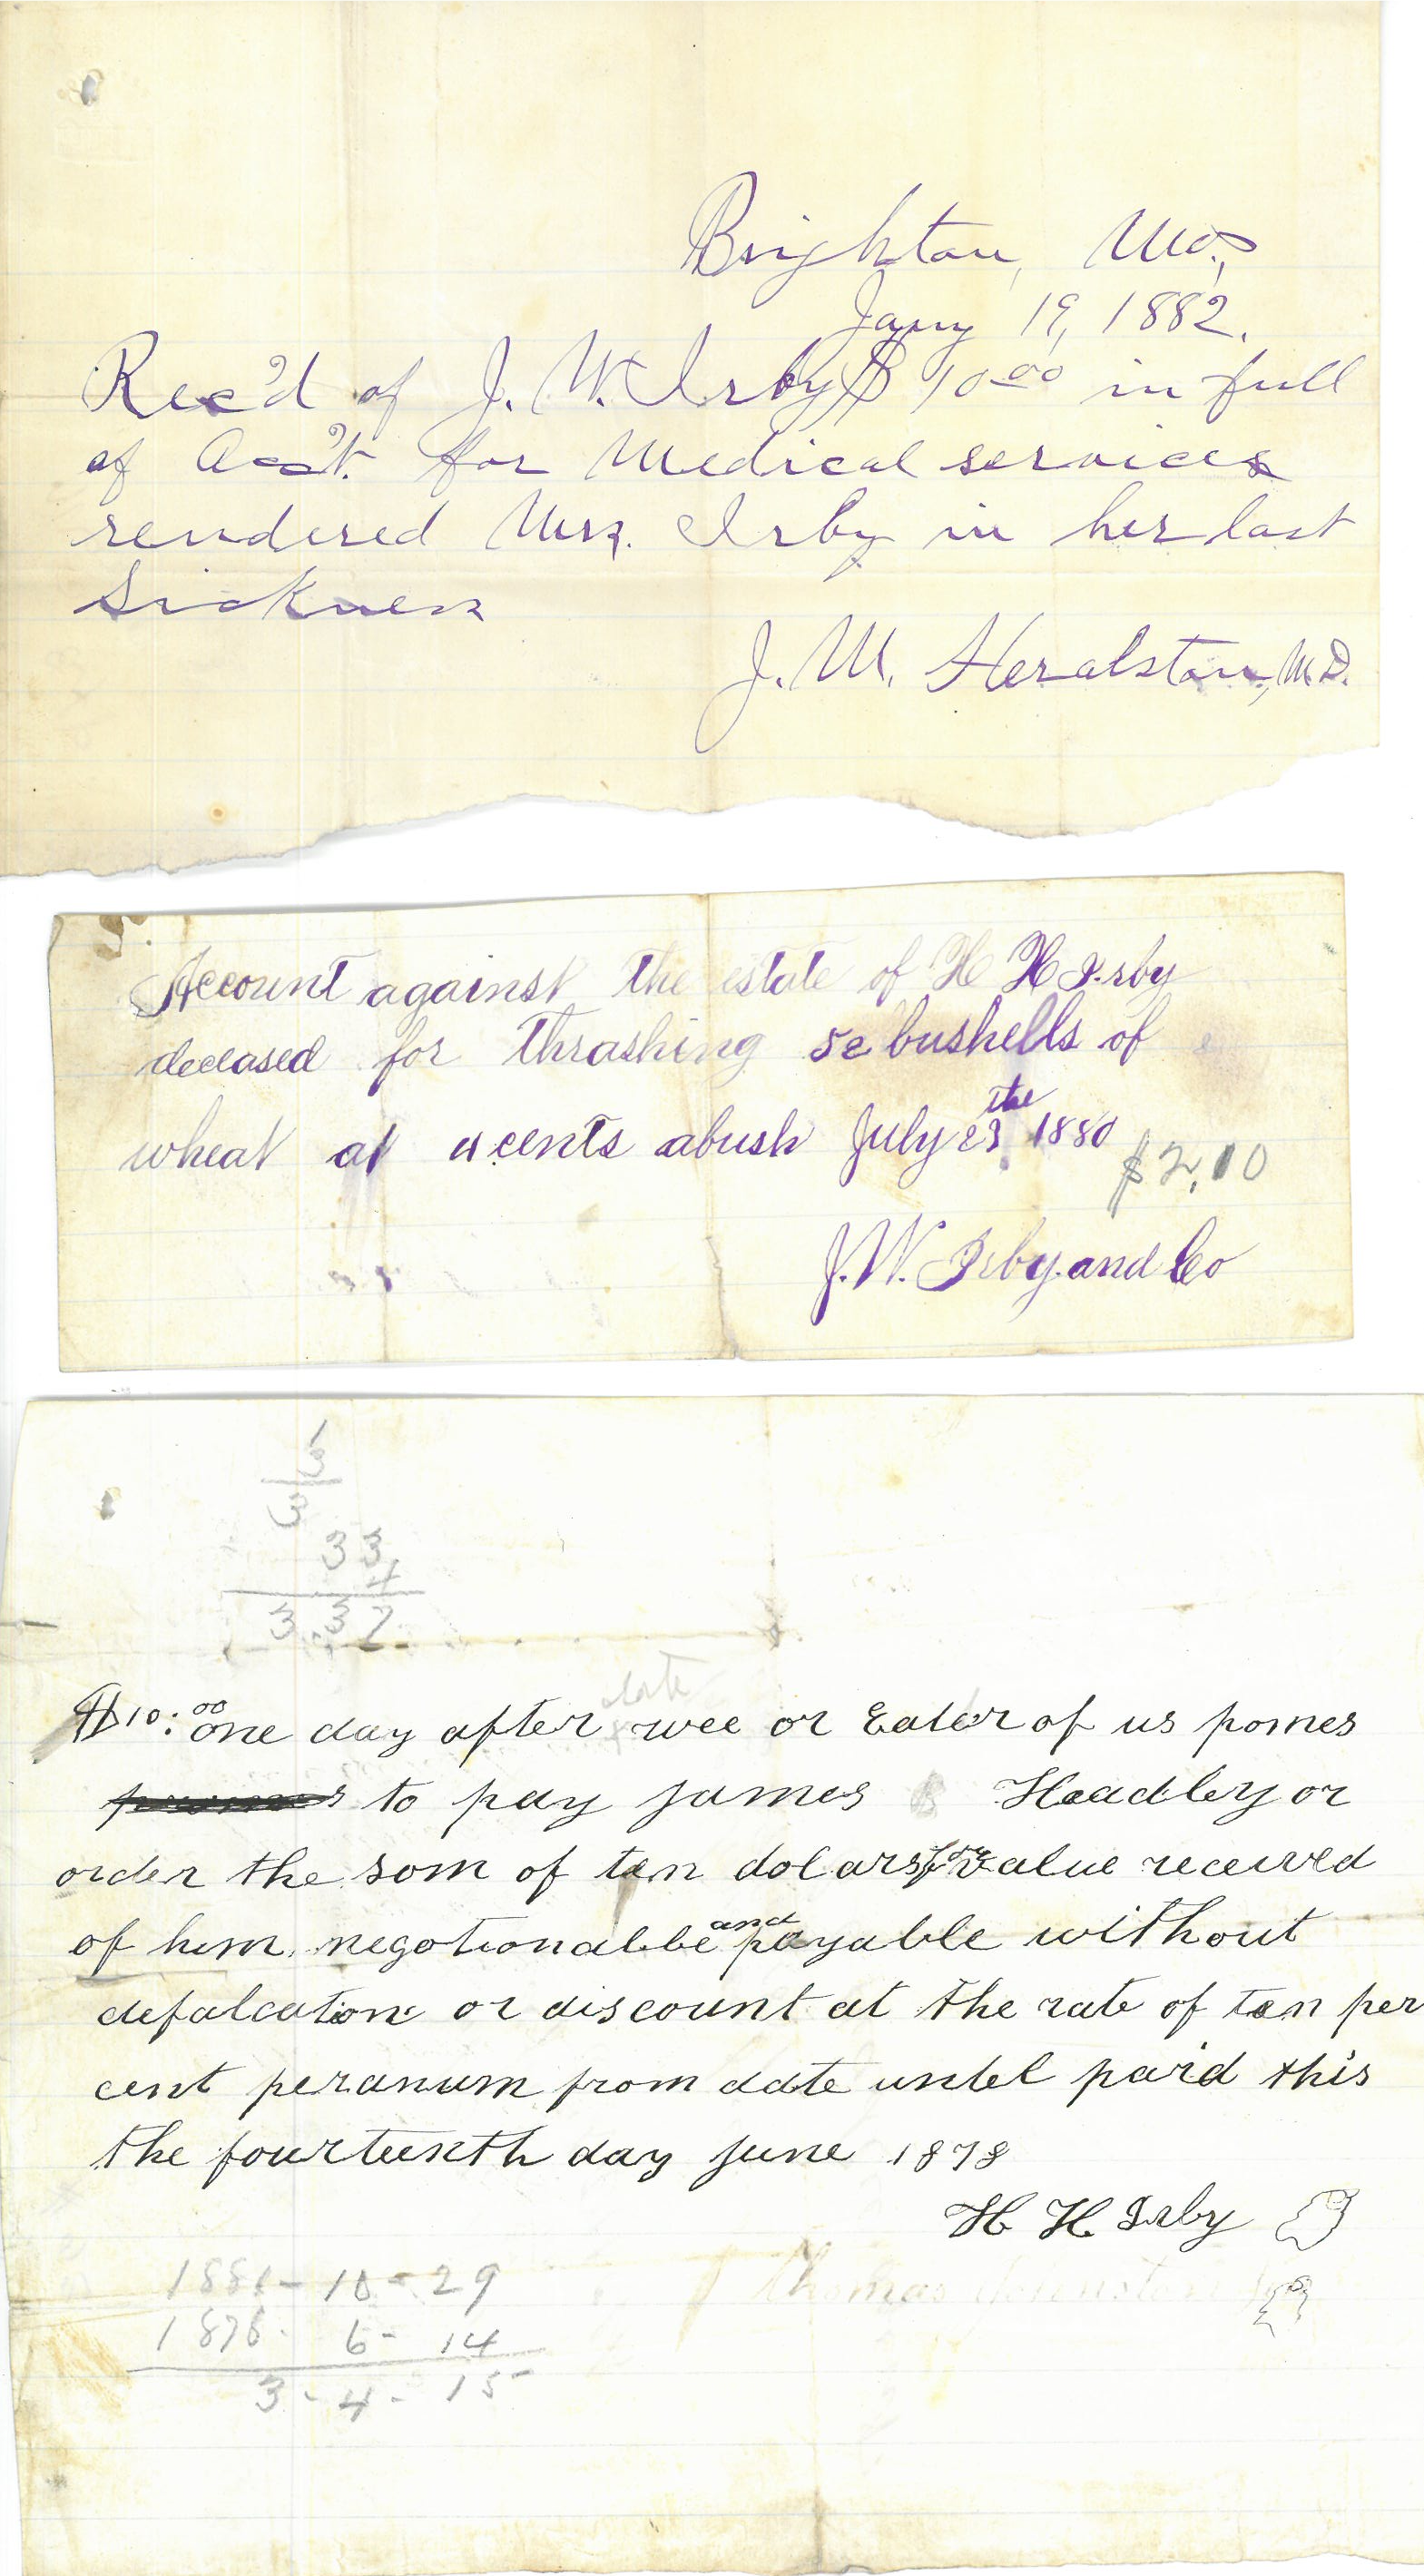 Brighton, Mo.,
Jany 19, 1882.
Rec'd of J. W. Irby $10 00 in full
of Acc't. for Medical services
rendered Mrs. Irby in her last
Sickness
J. M. Heralston, M.D.
Account against the estate of H H Irby
deceased for thrashing 52 bushells of
wheat at 4 cents abush July 29 the 1880
$2,10
J. W. Irby and Co
3 3
3 3
4
3.37
$10:00 one day after date wee or Eater of us pomes
to pay james Headley or
order the som of ten dolars for value received
of him. negotionalbe and payable without
defalcation or discount at the rate of ten per
cent peranum from date untel paid this
the fourteenth day june 1878
H H Irby
Thomas
1881-10-29
1878- 6- 14
3-4-15